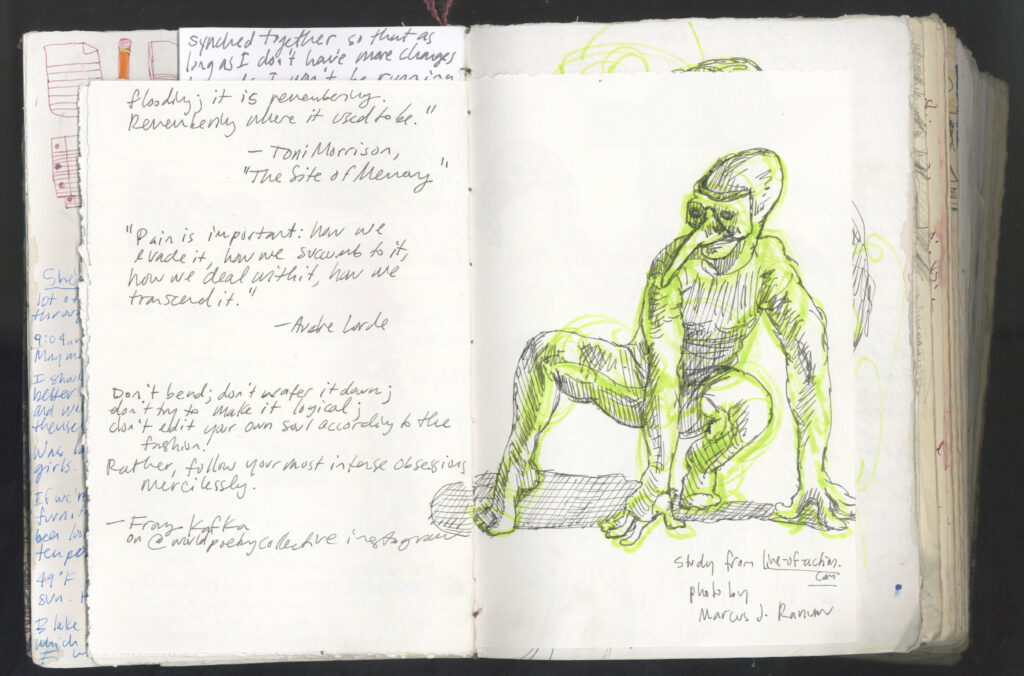 synched together so that as
long as I don't have more changes
I won't be running
flooding; it is remembering.
Remembering where it used to be."
— Toni Morrison,
"The Site of Memory"
"Pain is important: how we
evade it, how we succumb to it,
how we deal with it, how we
transcend it."
— Audre Lorde
Don't bend; don't water it down;
don't try to make it logical;
don't edit your own soul according to the
fashion!
Rather, follow your most intense obsessions
mercilessly.
— Franz Kafka
on @worldpoetrycollective instagram
She
lot of
throu
9:04am
May
I shou
better
and we
themse
Was
girls.
If we
furni
been
tempe
49°F
sun.
which
study from line-of-action.
com
photo by
Marcus J. Ranum